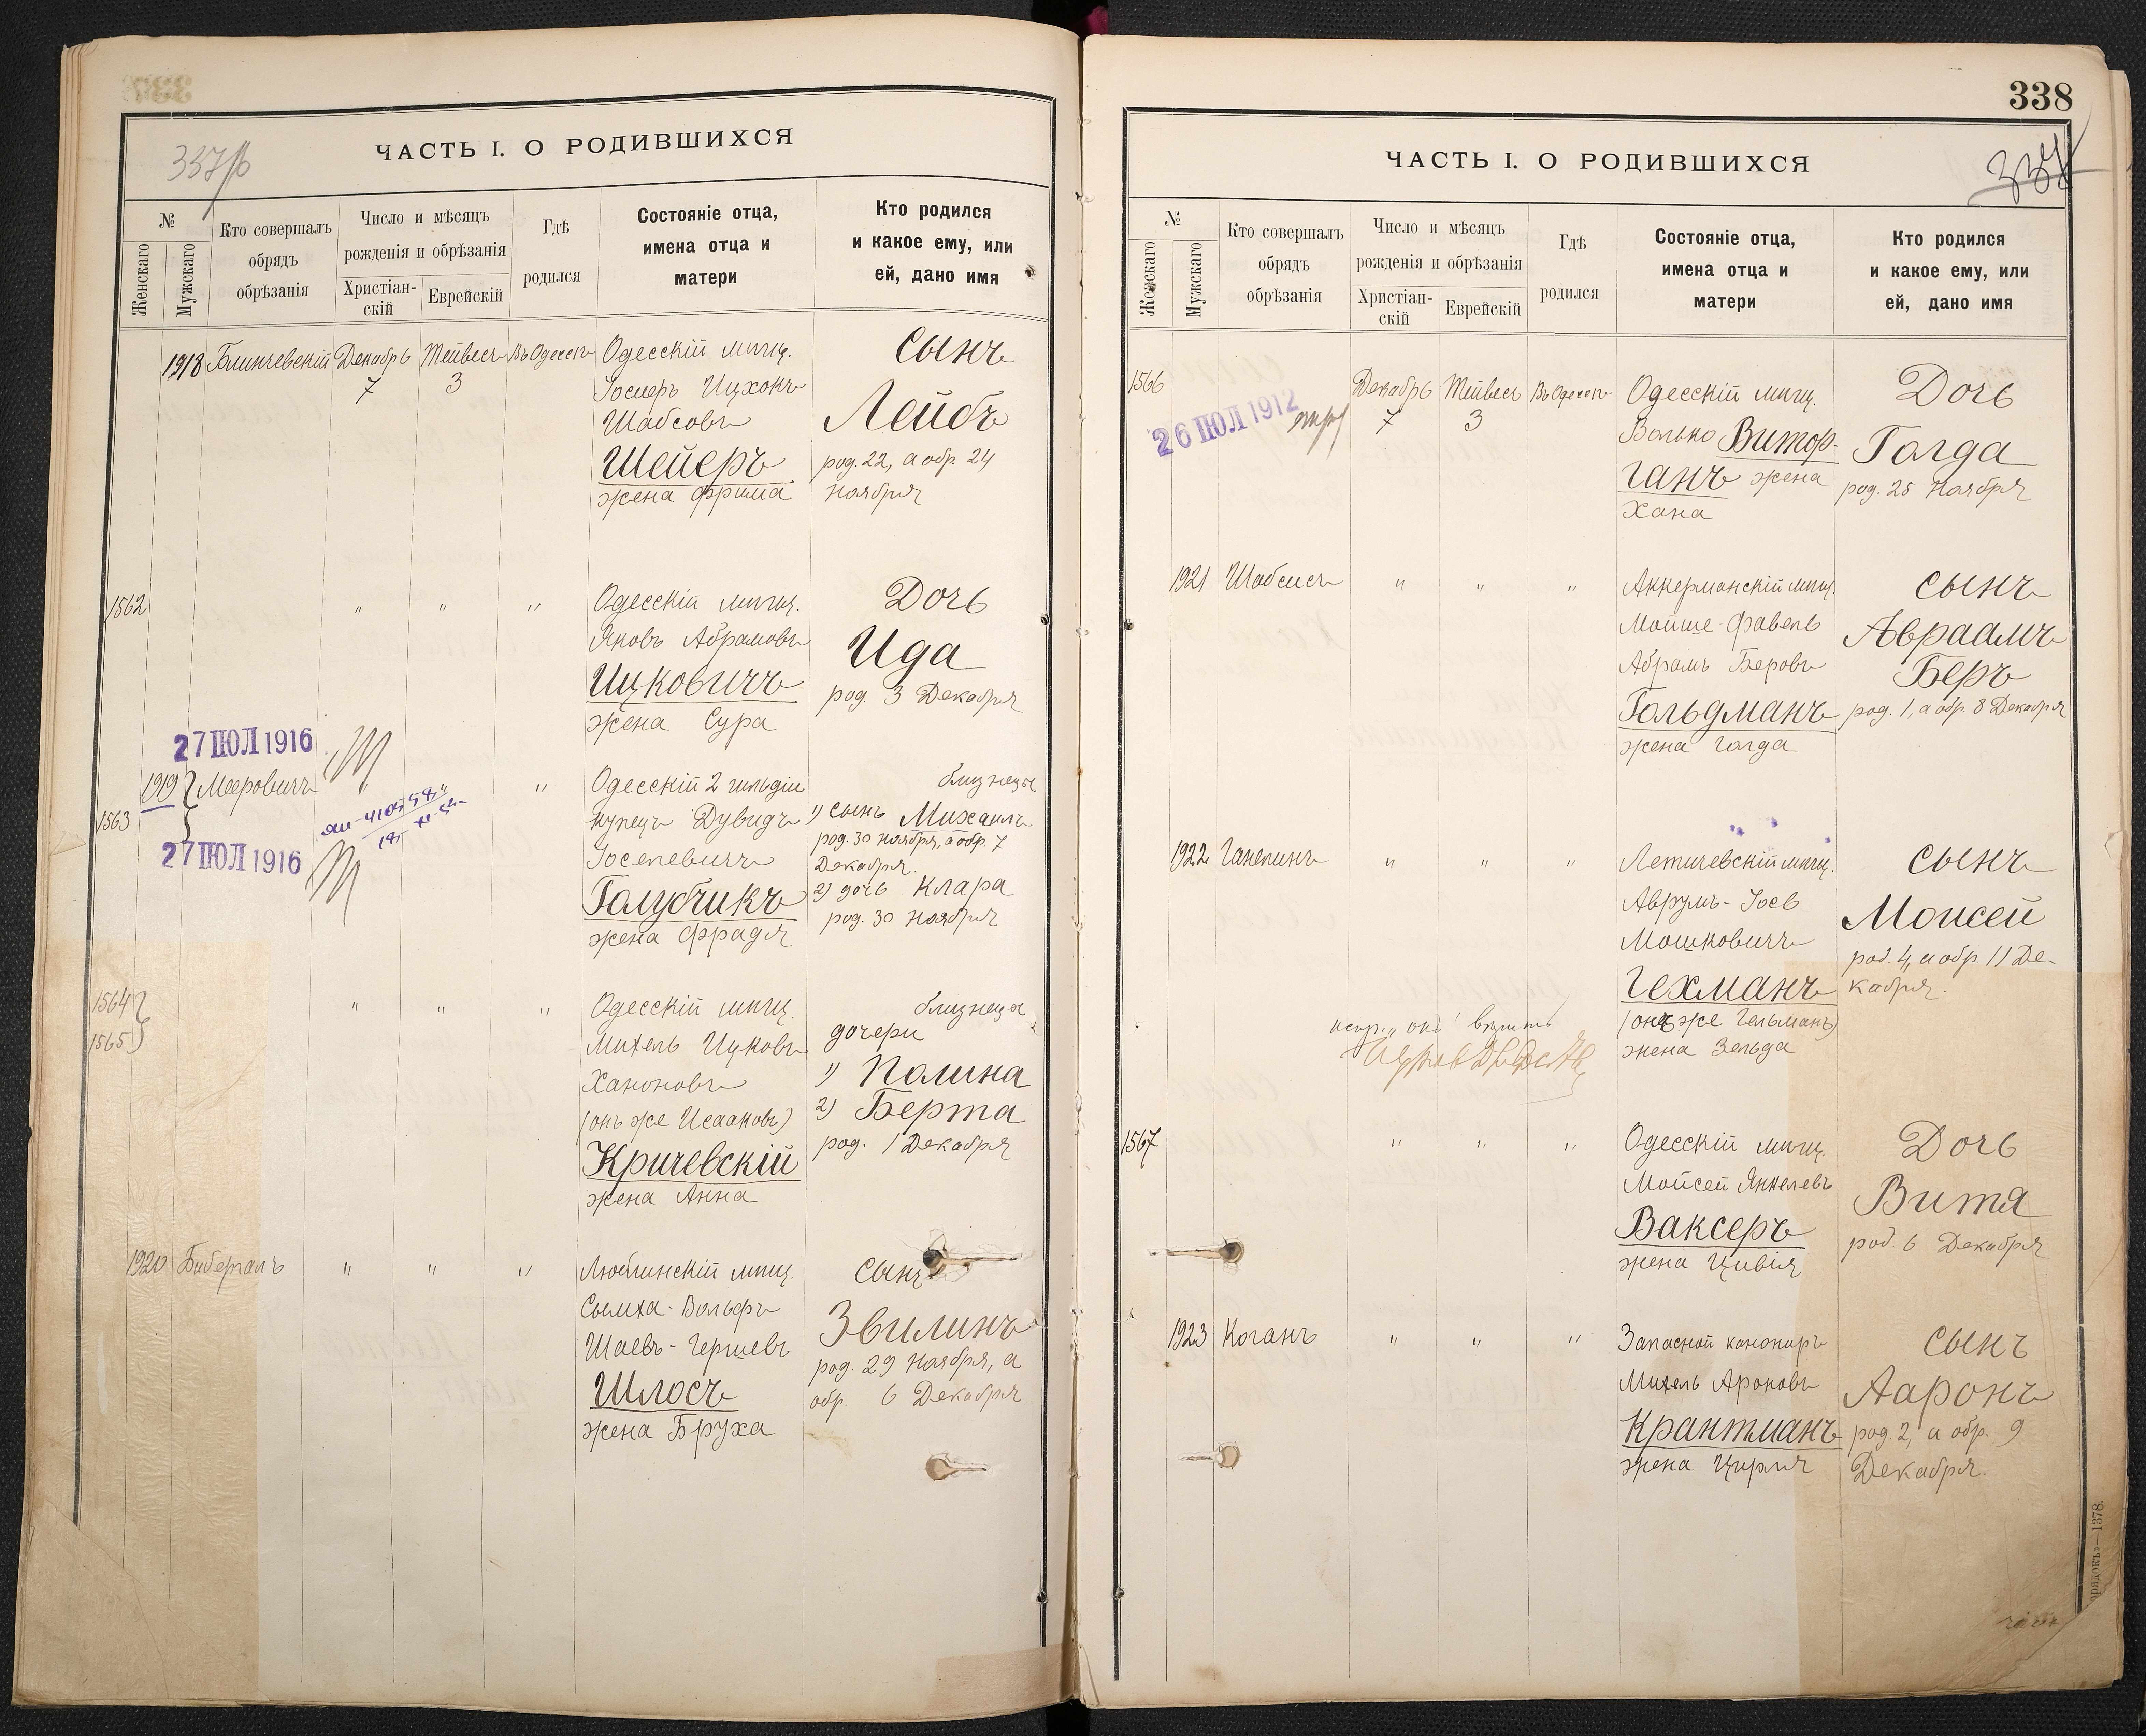 337
ЧАСТЬ I. О РОДИВШИХСЯ
№
Женскаго
Мужскаго
Кто совершалъ
обрядъ
обрѣзанія
Число и мѣсяцъ
рожденія и обрѣзанія
Христіан-
скій
Еврейскій
Гдѣ
родился
Состояніе отца,
имена отца и
матери
Кто родился
и какое ему, или
ей, дано имя
1918 Декабрь Тейвесъ Въ Одессѣ Одесскій мѣщ. Сынъ
7 3 Ицхокъ
Шабсовъ Лейбъ
Шейеръ род. 22, а обр. 24
жена Фрима Ноября
1562 " " " Одесскій мѣщ. Дочь
Яковъ Абрамовъ Ида
Ицковичъ род. 3 Декабря
жена Сура
27 ІЮЛ 1916
1919 Мееровичъ " " Одесскій 2 гильдіи близнецы
1563 купецъ Дувидъ 1) сынъ Михаилъ
род. 30 Ноября, а обр. 7
27 ІЮЛ 1916 Іоселевичъ Декабря.
Голубчикъ 2) дочь Клара
жена Фрадя род. 30 Ноября
1564 " " " Одесскій мѣщ. близнецы
1565 Михель Ицковъ дочери
Ханоновъ 1) Полина
(онъ же Исааковъ) 2) Берта
Кричевскій род. 1 Декабря
жена Анна
1920 " " " Люблинскій мѣщ. Сынъ
Сымха-Вольфъ Звилинъ
Шаевъ-Гершевъ род. 29 Ноября, а
Шлосъ обр. 6 Декабря
жена Бруха
338
337
ЧАСТЬ I. О РОДИВШИХСЯ
№
Женскаго
Мужскаго
Кто совершалъ
обрядъ
обрѣзанія
Число и мѣсяцъ
рожденія и обрѣзанія
Христіан-
скій
Еврейскій
Гдѣ
родился
Состояніе отца,
имена отца и
матери
Кто родился
и какое ему, или
ей, дано имя
1566 Декабрь Тейвесъ Въ Одессѣ Одесскій мѣщ. Дочь
26 ІЮЛ 1912 7 3 Волько Витор- Голда
ганъ жена род. 25 Ноября
Хана
1921 Шабсисъ " " " Аккерманскій мѣщ. Сынъ
Мойше-Фавель Авраамъ
Абрамъ Беровъ Беръ
Гольдманъ род. 1, а обр. 8 Декабря
жена Голда
1922 Ганелинъ " " " Летичевскій мѣщ. Сынъ
Аврумъ-Іосъ Моисей
Мошковичъ род. 4, а обр. 11 Де-
Гехманъ кабря.
(онъ же Гельманъ)
жена Зельда
1567 " " " Одесскій мѣщ. Дочь
Мойсей Янкелевъ Витя
Ваксеръ род. 6 Декабря
жена Цивія
1923 Коганъ " " " Запасной канониръ Сынъ
Михель Ароновъ Ааронъ
Крантманъ род. 2, а обр. 9
жена Цирля Декабря.